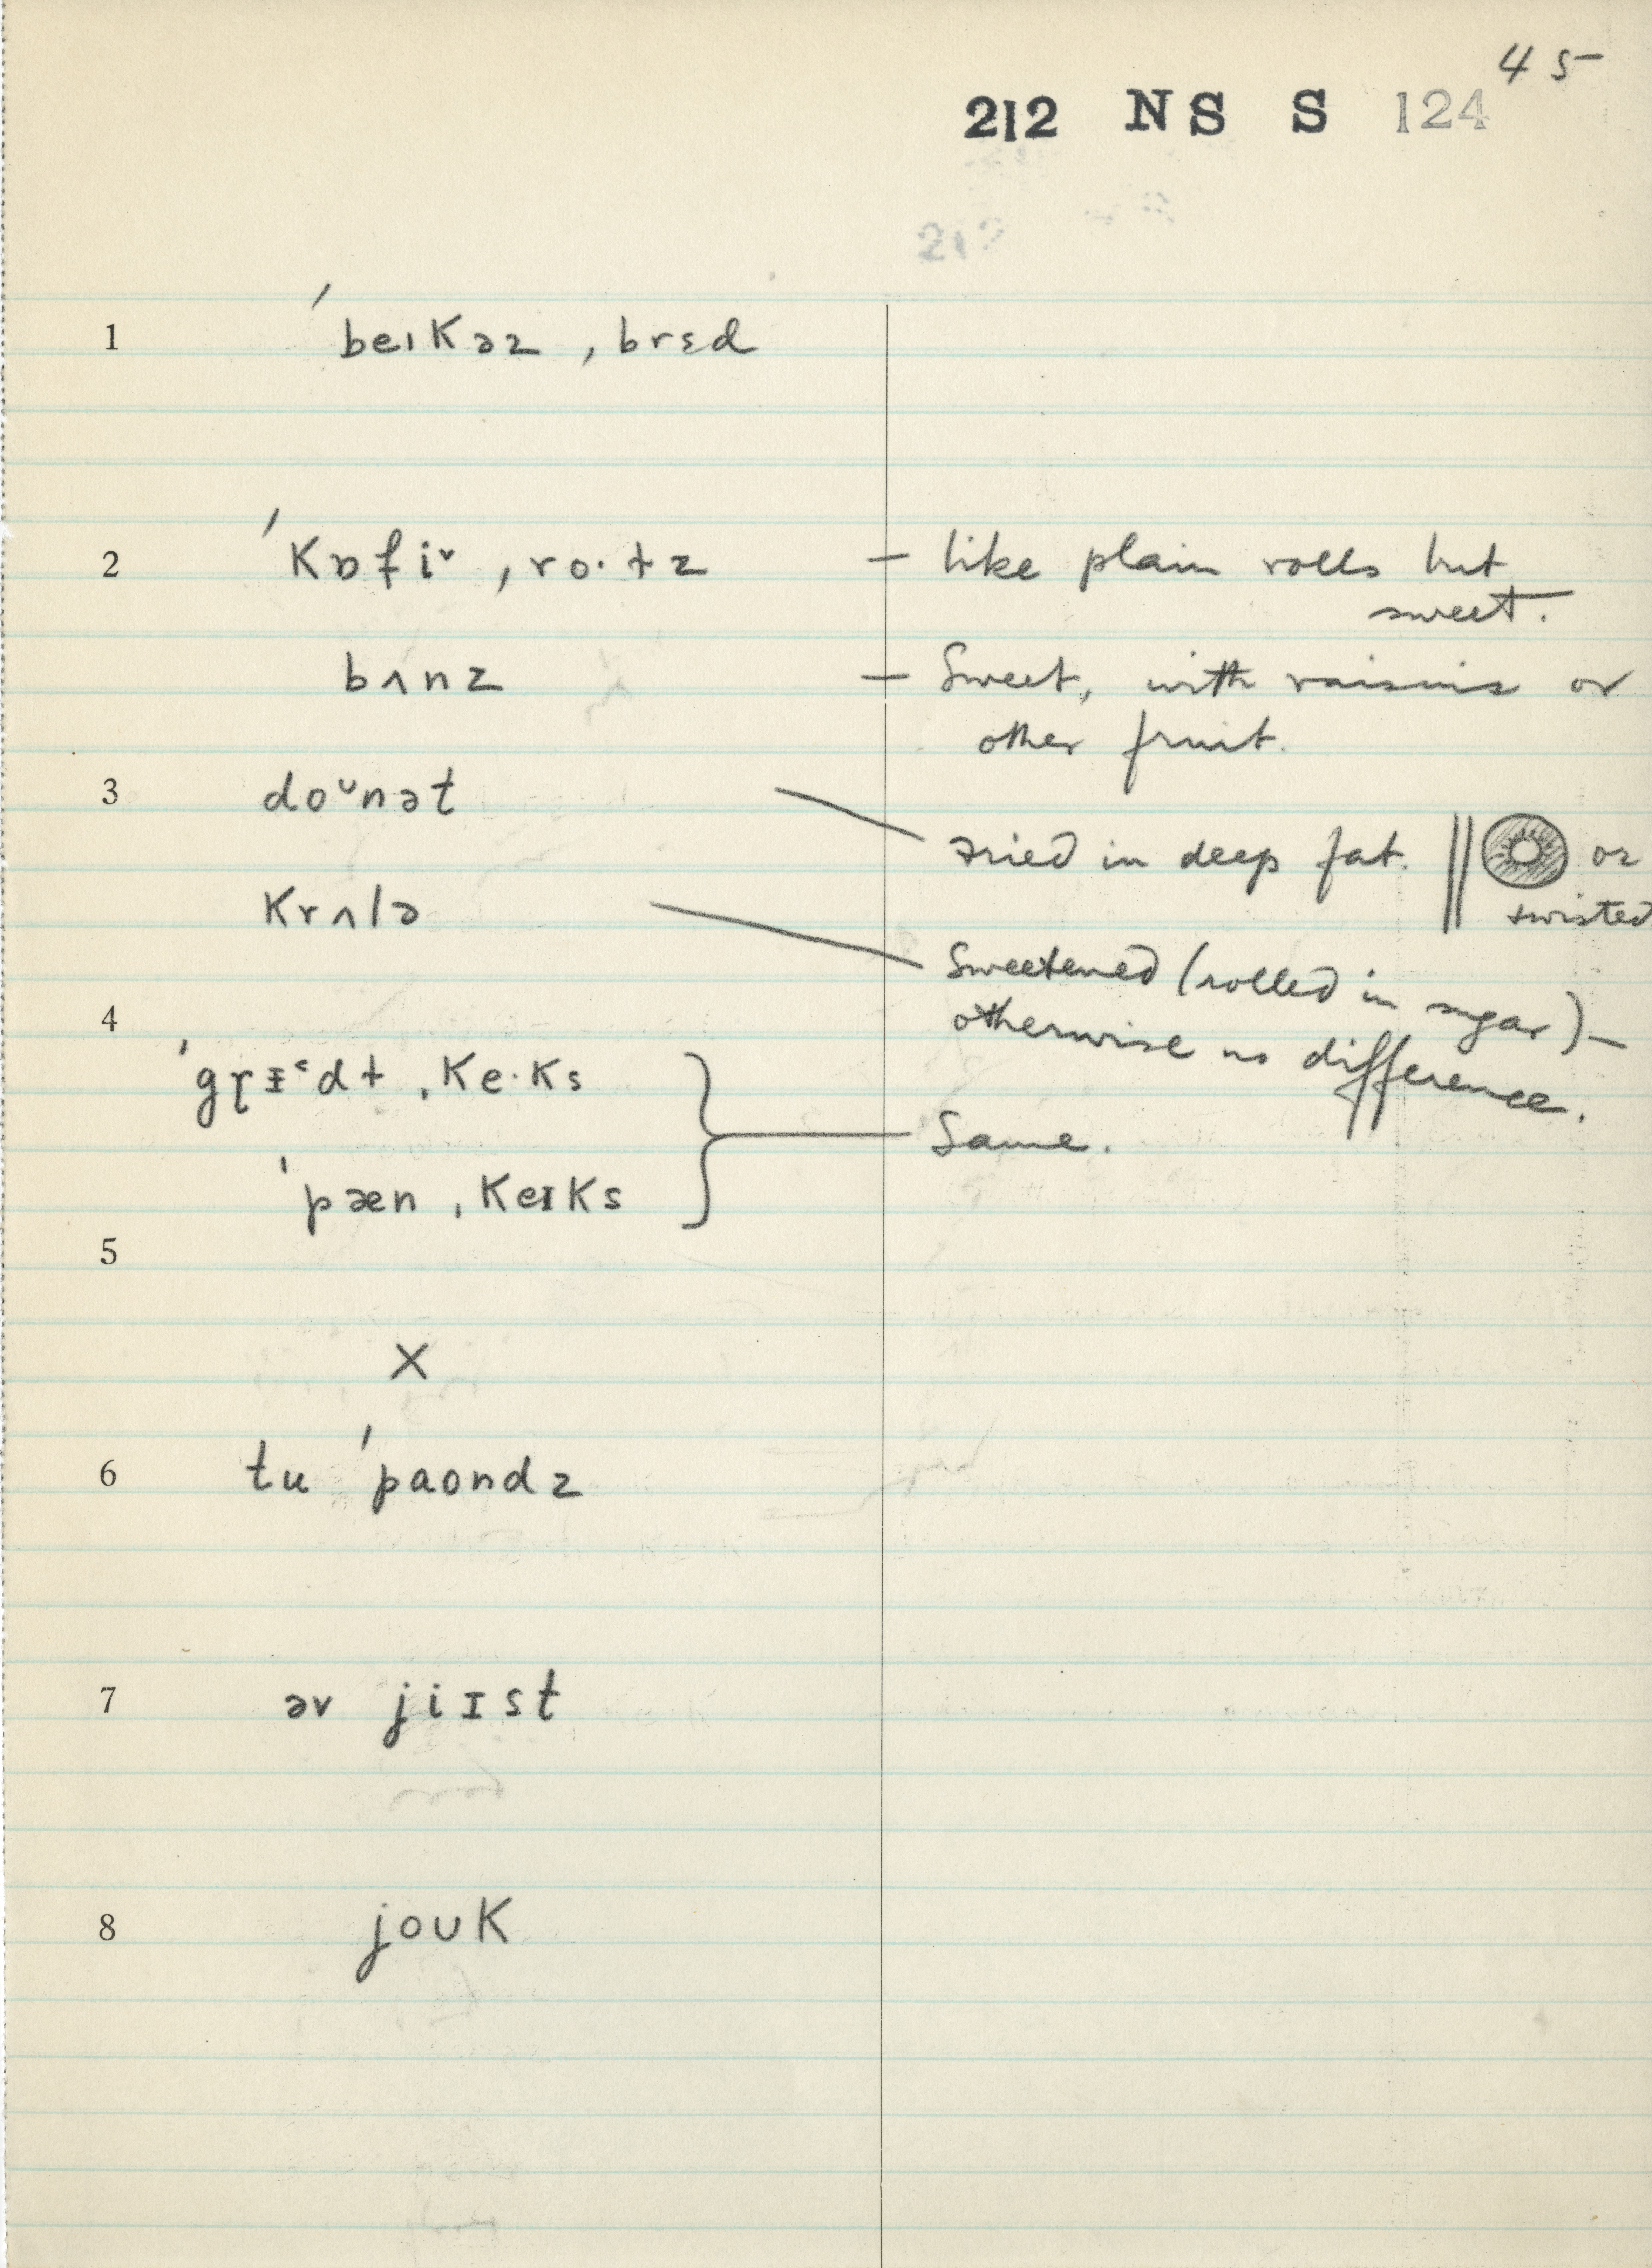 45
212 NS S 124
212
1 ˈbeɪkəz ˌbrɛd
2 ˈkɒfiˇ ˌro·ɫz – like plain rolls but
sweet.
bʌnz – Sweet, with raisins or
other fruit.
3 doᵕnət
Fried in deep fat. || or
twisted
krʌlə
Sweetened (rolled in sugar) –
otherwise no difference.
4
ˌke·ks
Same.
ˈpæn ˌkeɪks
5
X
6 tu ˈpaʊndz
7 əv jiɪst
8 joʊk